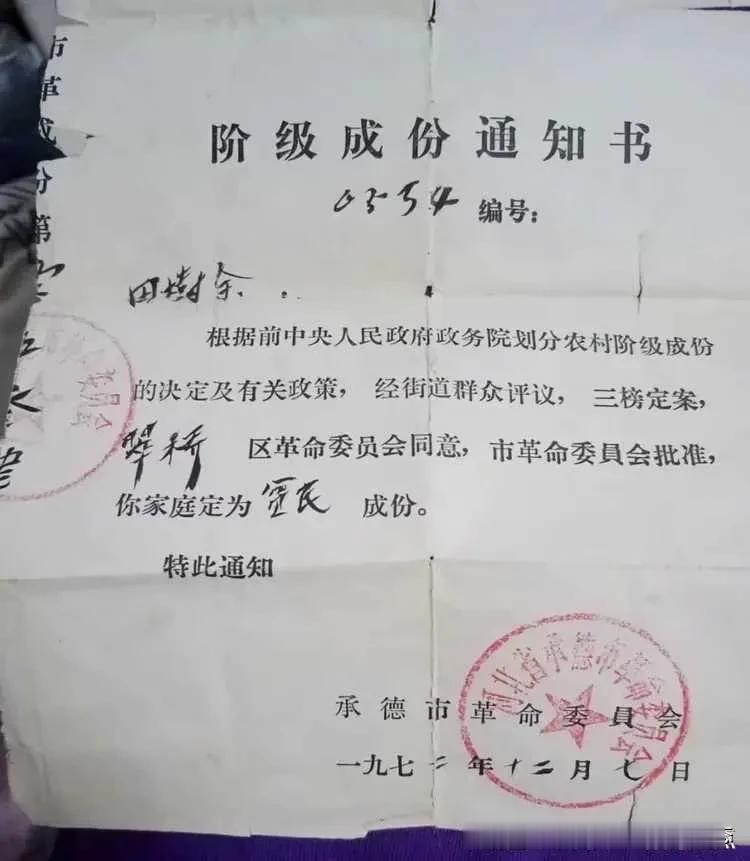 阶级成份通知书
0554 编号：
田树余．
根据前中央人民政府政务院划分农村阶级成份
的决定及有关政策，经街道群众评议，三榜定案，
翠桥 区革命委员会同意，市革命委員会批准，
你家庭定为 贫民 成份。
特此通知
河北省承德市革命委员会
承德市革命委員会
一九七二年十二月七日
市革成份第
革委员会